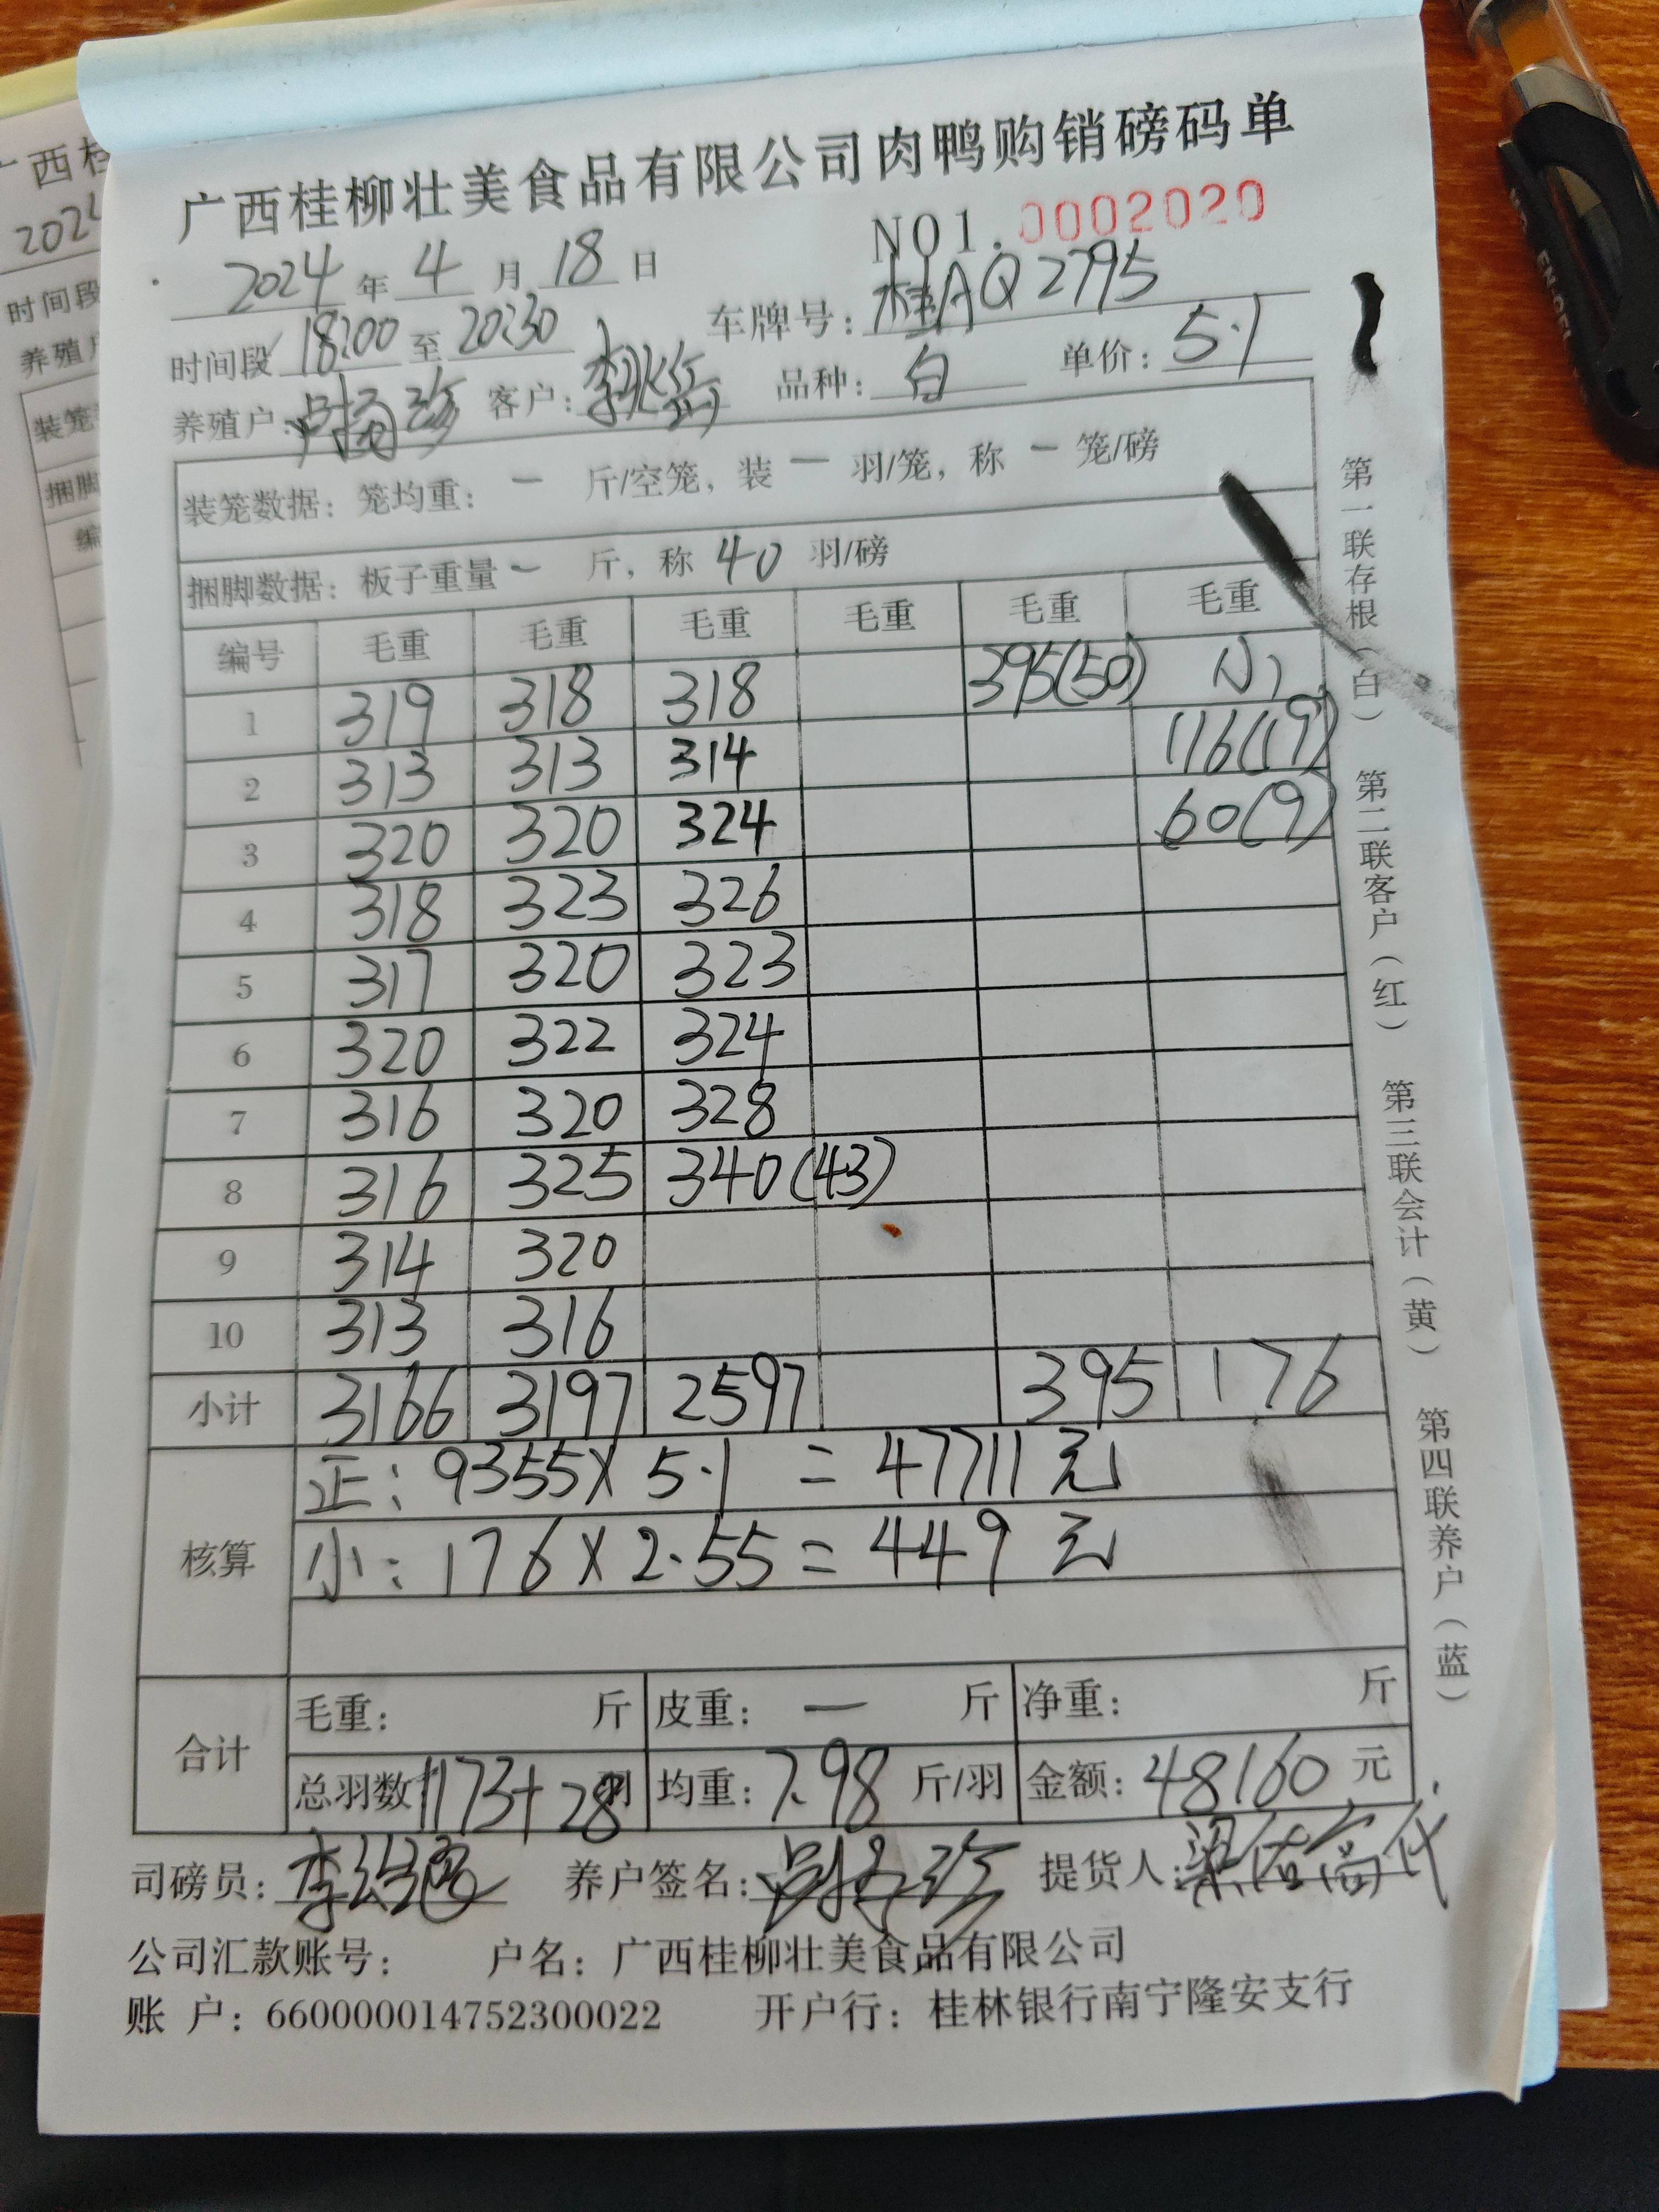 广西桂柳壮美食品有限公司肉鸭购销磅码单
NO1.0002020
2024年4月18日
时间段 18:00 至 20:30 车牌号：桂AQ2795
养殖户： 珍 客户：李 品种：白 单价：5.1
装笼数据：笼均重：一 斤/空笼，装 一 羽/笼，称 一 笼/磅
捆脚数据：板子重量 一 斤，称 40 羽/磅
编号 毛重 毛重 毛重 毛重 毛重 毛重
1 319 318 318 395(50) 小
2 313 313 314 116(19)
3 320 320 324 60(9)
4 318 323 326
5 317 320 323
6 320 322 324
7 316 320 328
8 316 325 340(43)
9 314 320
10 313 316
小计 3166 3197 2597 395 176
核算
正：9355×5.1=47711元
小：176×2.55=449元
合计
毛重： 斤 皮重：一 斤 净重： 斤
总羽数 1173+28羽 均重：7.98 斤/羽 金额：48160元
司磅员：李 养户签名： 珍 提货人：梁 代
公司汇款账号： 户名：广西桂柳壮美食品有限公司
账 户：660000014752300022 开户行：桂林银行南宁隆安支行
第一联存根（白） 第二联客户（红） 第三联会计（黄） 第四联养户（蓝）
广西桂
202
时间段
养殖户
装笼
捆脚
编